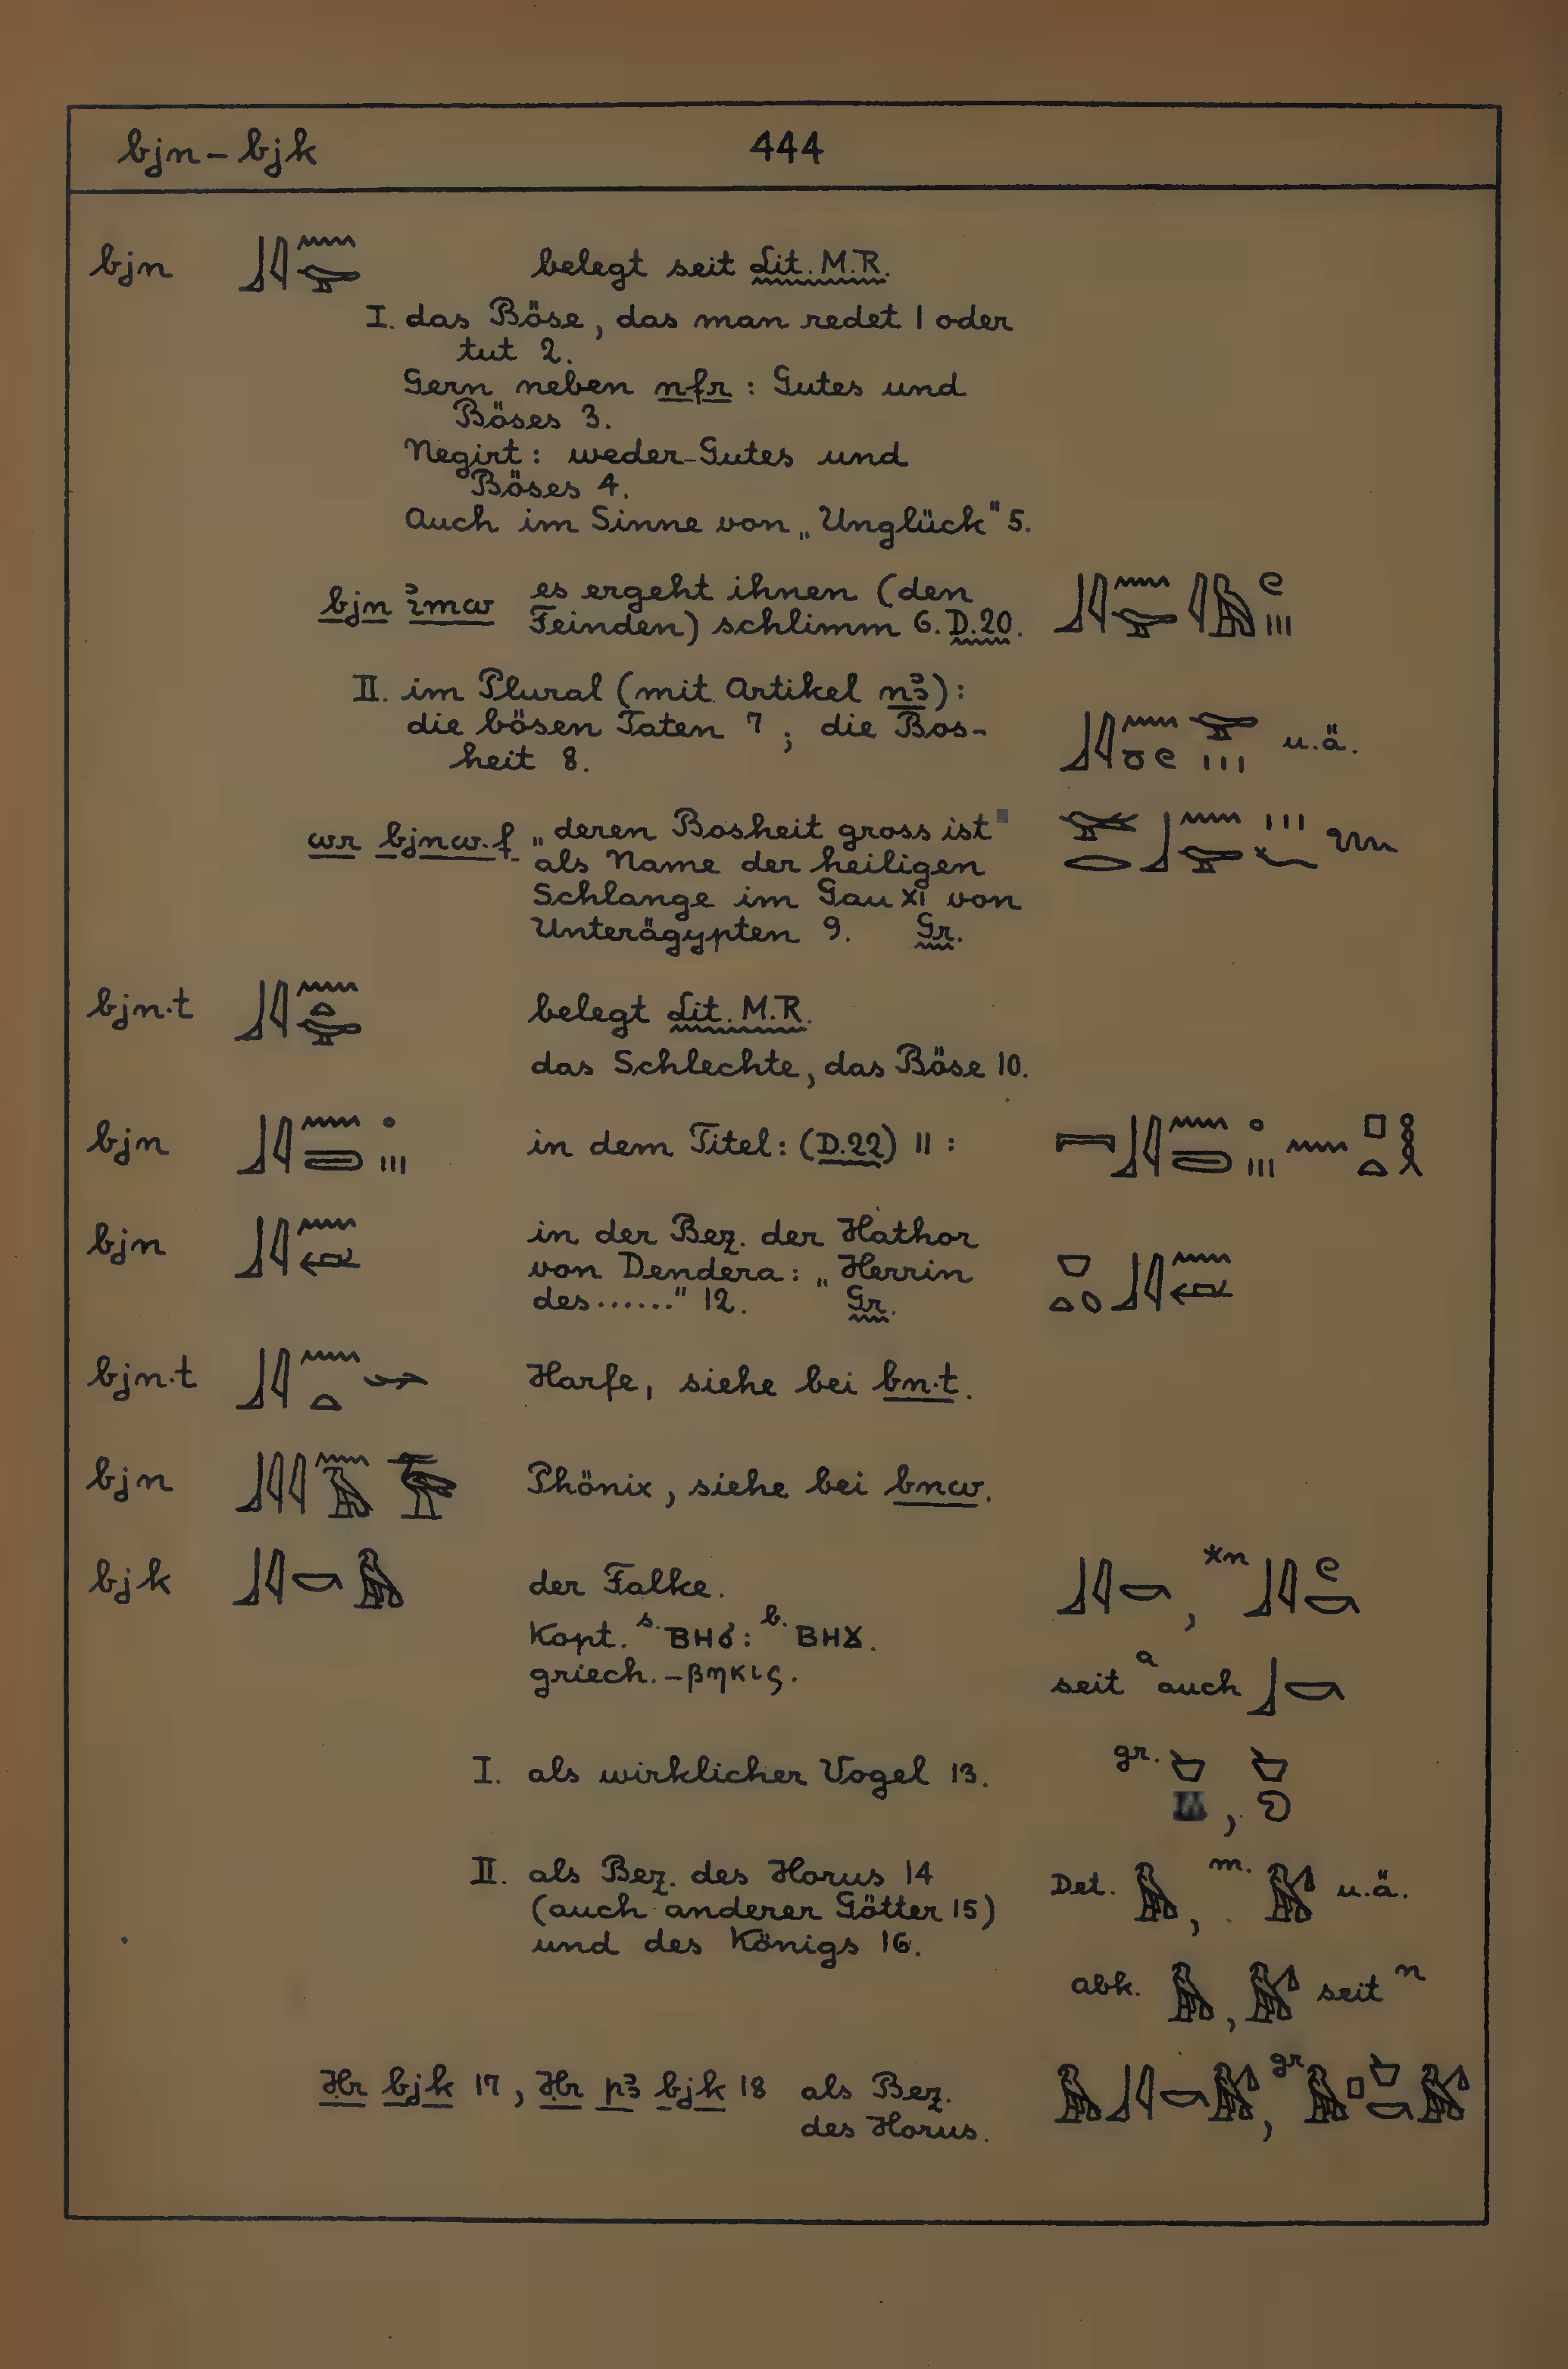 bjn – bjk 444
bjn belegt seit Lit. M.R.
I. das Böse, das man redet 1 oder
tut 2.
Gern neben nfr : Gutes und
Böses 3.
Negirt : weder Gutes und
Böses 4.
Auch im Sinne von „Unglück" 5.
bjn ꜣmw es ergeht ihnen (den
Feinden) schlimm 6. D.20.
II. im Plural (mit Artikel nꜣ) :
die bösen Taten 7 ; die Bos-
heit 8. u.ä.
wr bjnw.f „deren Bosheit gross ist"
als Name der heiligen
Schlange im Gau XI von
Unterägypten 9. Gr.
bjn.t belegt Lit. M.R.
das Schlechte, das Böse 10.
bjn in dem Titel : (D.22) 11 :
bjn in der Bez. der Hathor
von Dendera : „Herrin
des ......" 12. Gr.
bjn.t Harfe, siehe bei bn.t.
bjn Phönix, siehe bei bnw.
bjk der Falke. , *n
Kopt. s. ⲃⲏϭ : b. ⲃⲏϫ.
griech. –βηκις. seit a auch
I. als wirklicher Vogel 13. gr. ,
II. als Bez. des Horus 14 Det. , m. u.ä.
(auch anderer Götter 15)
und des Königs 16. abk. , seit n
Ḥr bjk 17, Ḥr pꜣ bjk 18 als Bez. , gr.
des Horus.